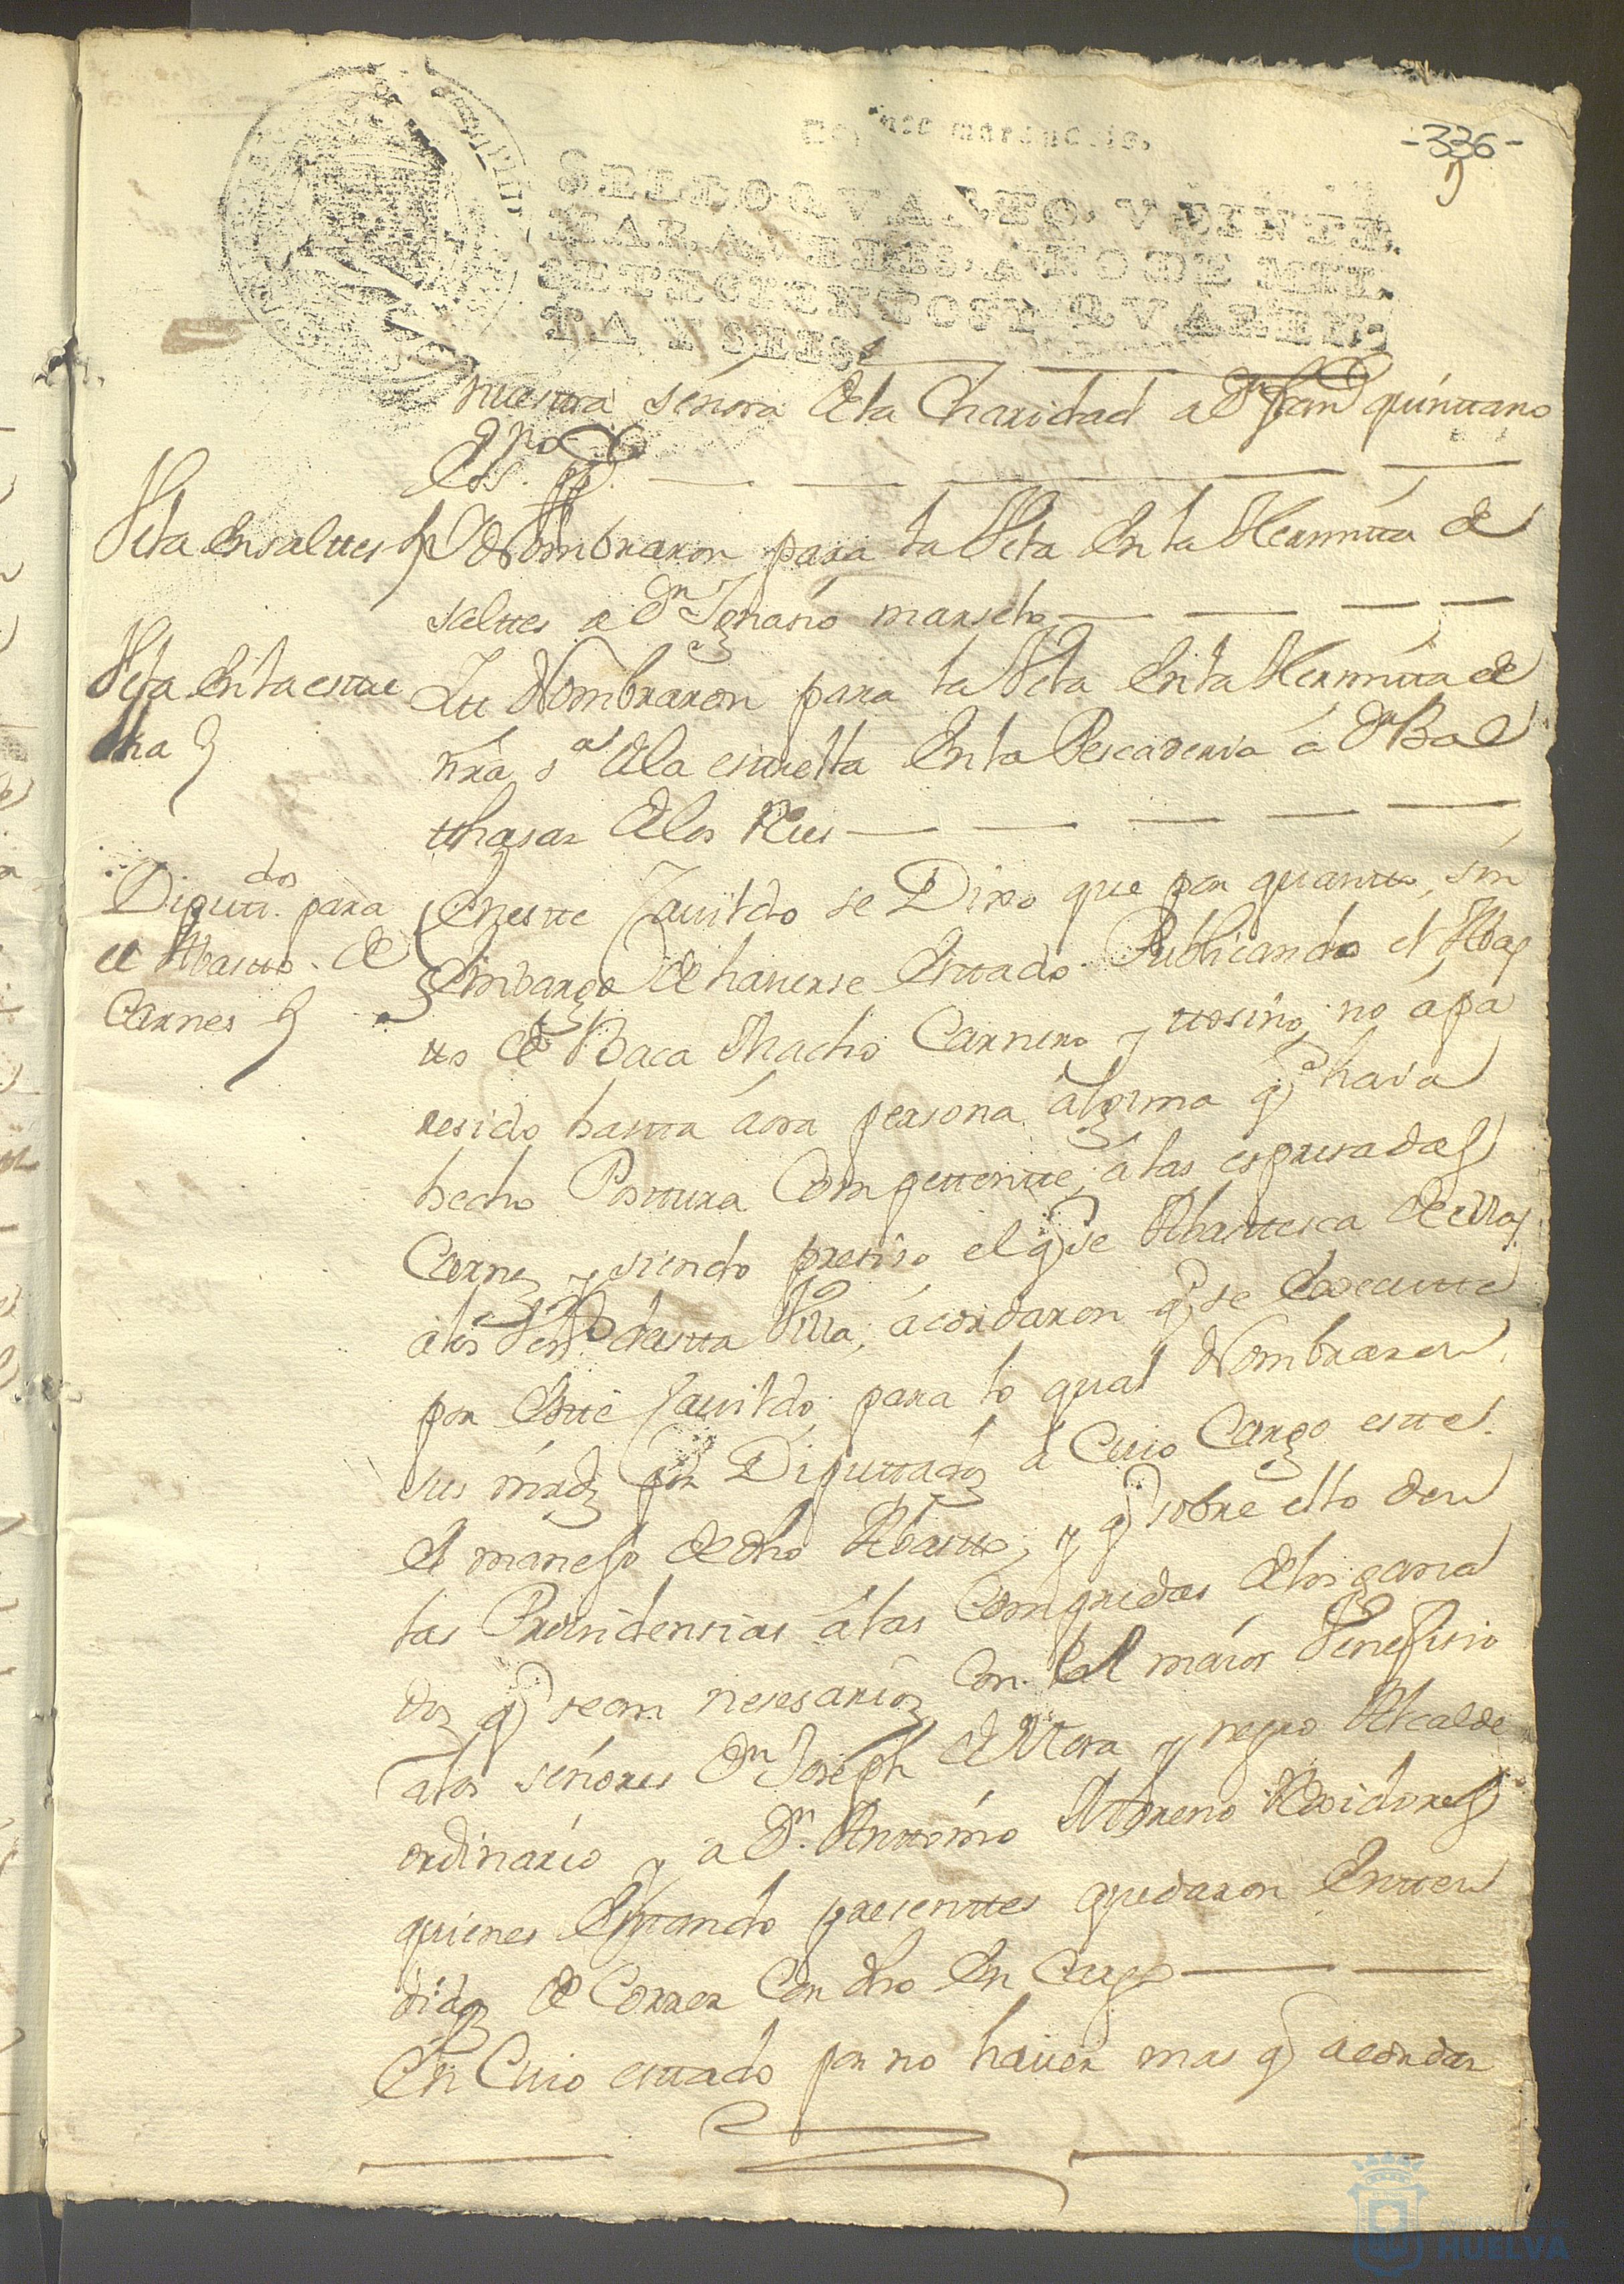 -336-
SELLO QVARTO, VEINTE
MARAVEDIS, AÑO DE MIL
SETECIENTOS Y QVAREN-
TA Y SEIS.
nuestra señora de la Charidad a Dn Franco quintano
Vela en saltes
Nombraron para la Vela en la Hermita de
saltes a Dn Ignasio marselo
Vela en la estre
lla
Itt Nombraron para la Vela en la Hermita de
nra sa de la estrella en la Pescaderia á Dn Bal
thasar de los Ries
Diputtdos para
el Abastto de
Carnes
En estte Cavildo se Dixo que por quantto, sin
embargo de haverse esttado Publicando el Abas
tto de Baca Macho Carnero y ttosino, no ápa
resido hastta áora persona álguna q haia
hecho Posttura Competentte, á las espresadas
Carnes y siendo presiso el q se Abasttesca de ellas
a los Vesos destta Villa, ácordaron q se execute
por estte Cavildo, para lo qual Nombraron
sus mrds por Diputtados á Cuio Cargo estte
el manejo de dho Abastto, y q sobre ello den
las Providensias á las Compridas de los gana
dos q sean nesesarios con el maior Venefisio
a los señores Dn Joseph de Mora y negro Alcalde
ordinario y a Dn Anttonio Moreno Rexidores
quienes esttando presenttes quedaron Entten
didos de Correr Con dho en Cargo
En Cuio esttado por no haver mas q acordar
HUELVA